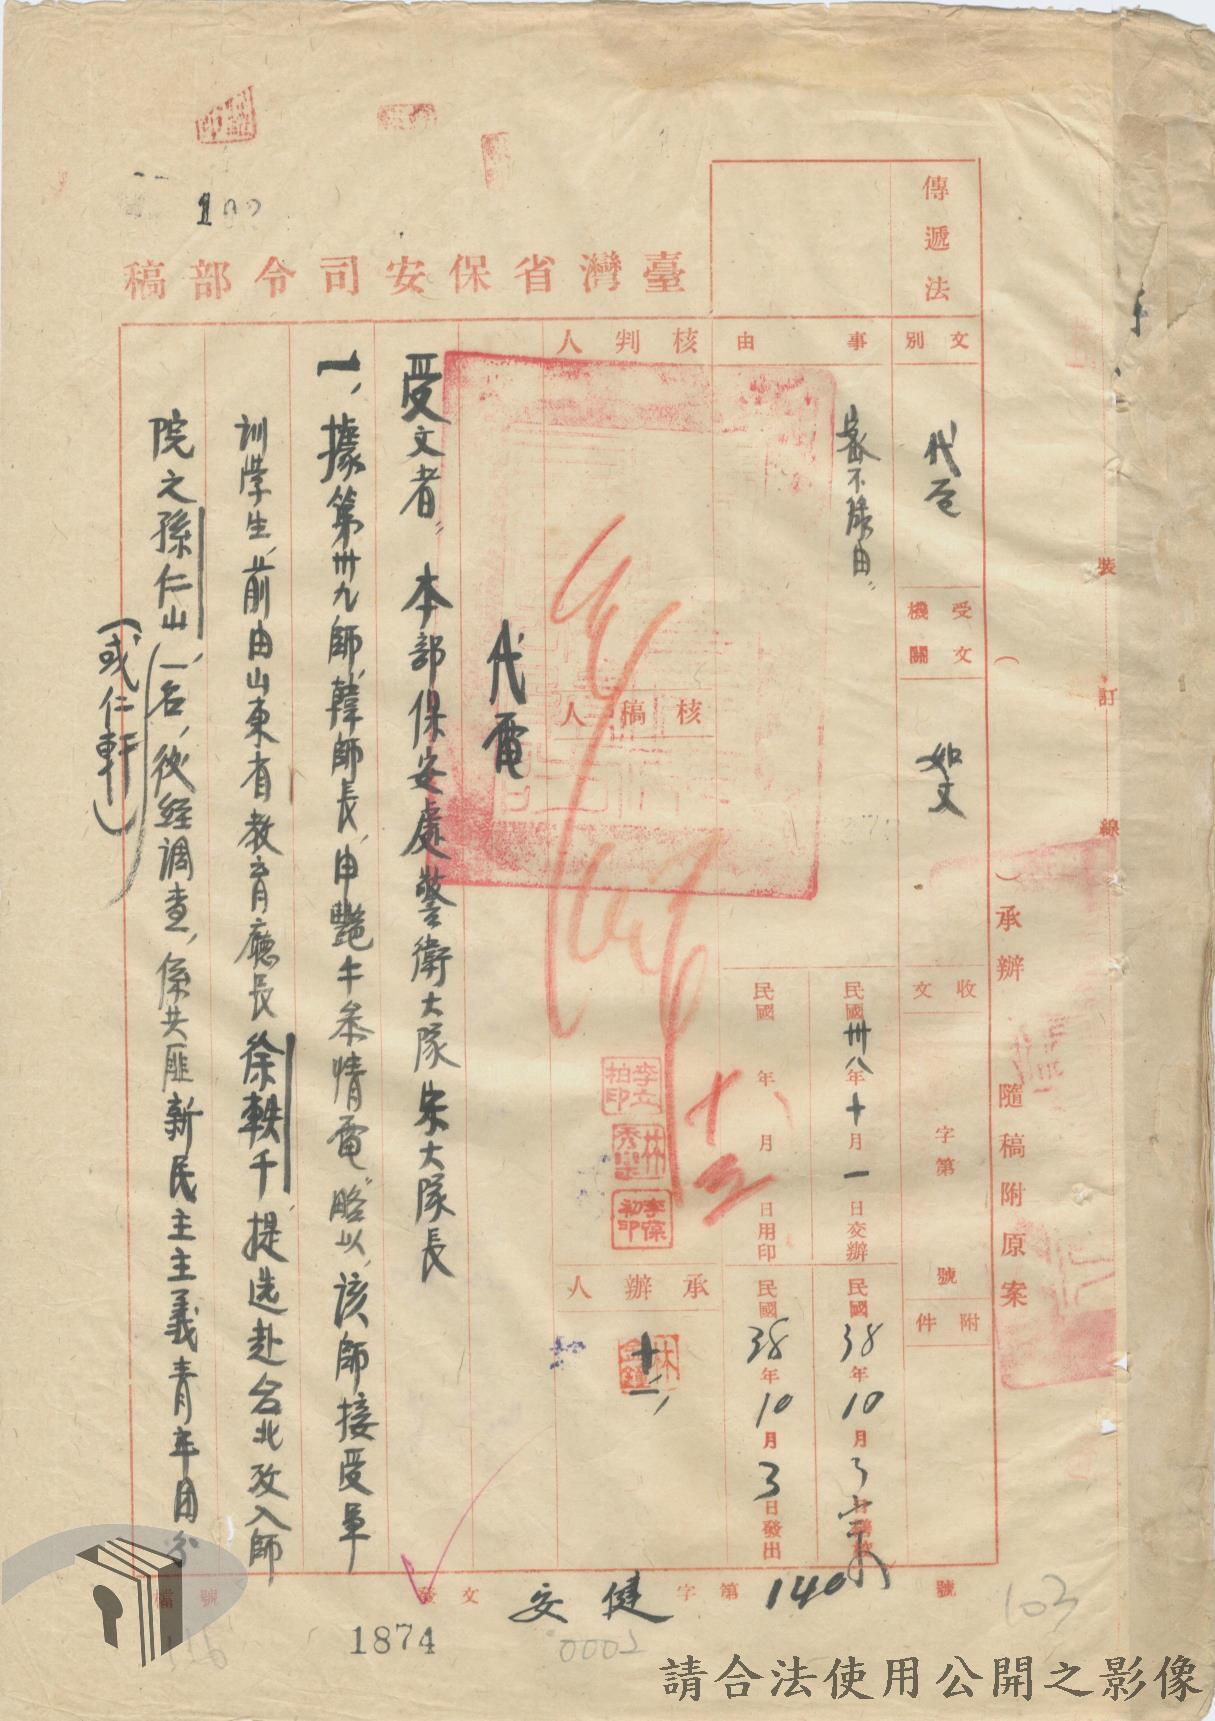 臺灣省保安司令部稿
傳遞法
文別
代電
受文機關
如文
收文
字第
號
附件
事由
密不錄由
核判人
核稿人
承辦人
民國卅八年十月一日交辦
民國38年10月3日繕校
民國 年 月 日用印
民國38年10月3日發出
十三
李立柏印
林秀欒
李葆初印
十二
代電
受文者：本部保安處警衛大隊宋大隊長
一、據第卅九師韓師長，申艷牛叅情電略以，該師接受軍
訓學生，前由山東省教育廳長徐軼千，提選赴台北攷入師
院之孫仁山，一名，後經調查，係共匪新民主主義青年团分
（或仁軒）
裝訂線
（ ）承辦 隨稿附原案
發文 安健 字第 140 號
檔號
1874
0002
103
請合法使用公開之影像